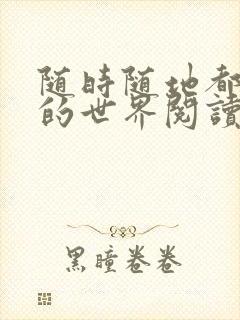 随時随地都
的世界閱讀
黑瞳卷卷